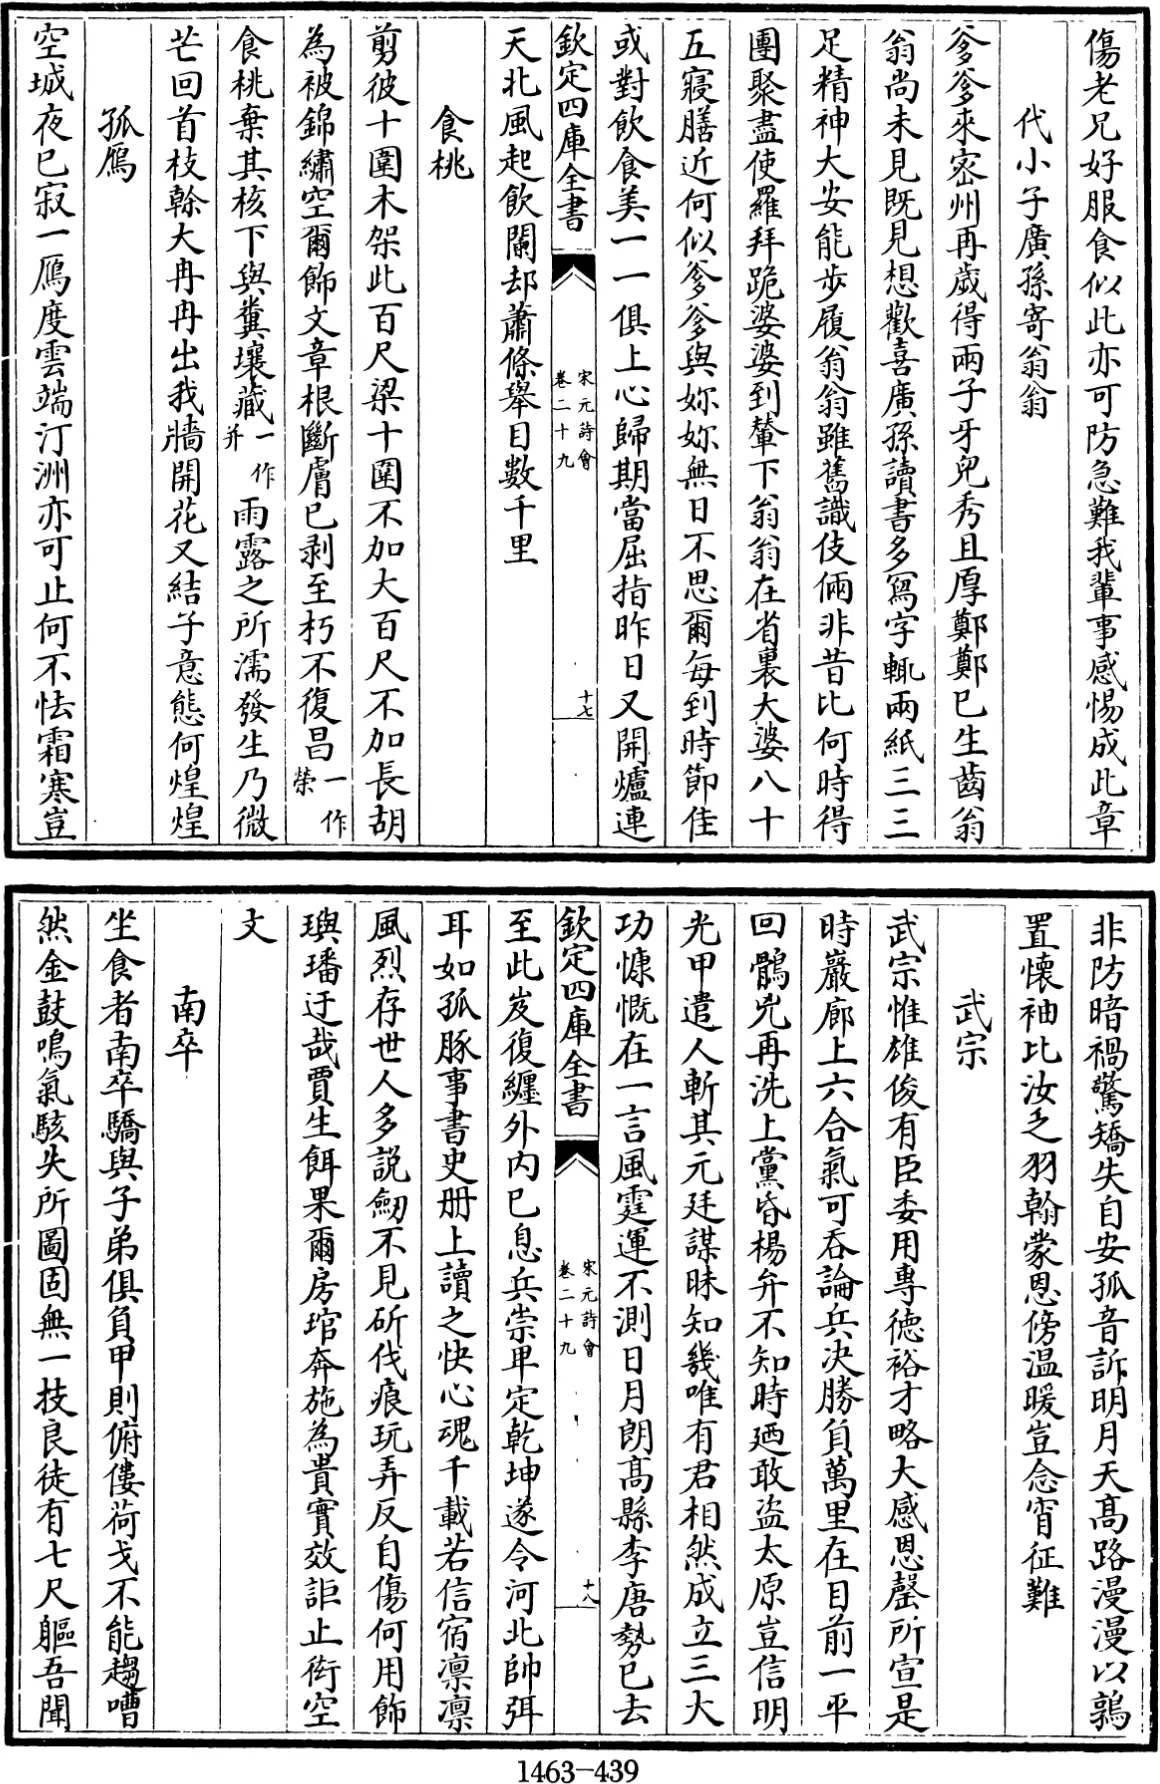 傷老兄好服食似此亦可防急難我輩事感惕成此章
代小子廣孫寄翁翁
爹爹來密州再歲得兩子牙兒秀且厚鄭鄭已生齒翁
翁尚未見既見想歡喜廣孫讀書多寫字輒兩紙三三
足精神大安能步履翁翁雖舊識伎倆非昔比何時得
團聚盡使羅拜跪婆婆到輦下翁翁在省裏大婆八十
五寢膳近何似爹爹與妳妳無日不思爾每到時節佳
或對飲食美一一俱上心歸期當屈指昨日又開爐連
欽定四庫全書
宋元詩會
卷二十九
十七
天北風起飲闌却蕭條舉目數千里
食桃
剪彼十圍木架此百尺梁十圍不加大百尺不加長胡
為被錦繡空爾飾文章根斷膚已剥至朽不復昌一作
榮
食桃棄其核下與糞壤藏一作
并
雨露之所濡發生乃微
芒回首枝榦大冉冉出我牆開花又結子意態何煌煌
孤鴈
空城夜已寂一鴈度雲端汀洲亦可止何不怯霜寒豈
非防暗禍驚矯失自安孤音訴明月天髙路漫漫以鶉
置懷袖比汝乏羽翰蒙恩傍溫暖豈念宵征難
武宗
武宗惟雄俊有臣委用專徳裕才略大感恩罄所宣是
時巖廊上六合氣可吞論兵决勝負萬里在目前一平
回鶻兇再洗上黨昏楊弁不知時廼敢盗太原豈信明
光甲遣人斬其元廷謀昧知幾唯有君相然成立三大
功慷慨在一言風霆運不測日月朗髙縣李唐勢已去
欽定四庫全書
宋元詩會
卷二十九
十八
至此岌復纏外内已息兵崇卑定乾坤遂令河北帥弭
耳如孤豚事書史册上讀之快心魂千載若信宿凛凛
風烈存世人多説劒不見斫伐痕玩弄反自傷何用飾
璵璠迂哉賈生餌果爾房琯奔施為貴實效詎止衒空
文
南卒
坐食者南卒驕與子弟俱負甲則俯僂荷戈不能趨嘈
然金鼓鳴氣駭失所圖固無一技良徒有七尺軀吾聞
1463-439